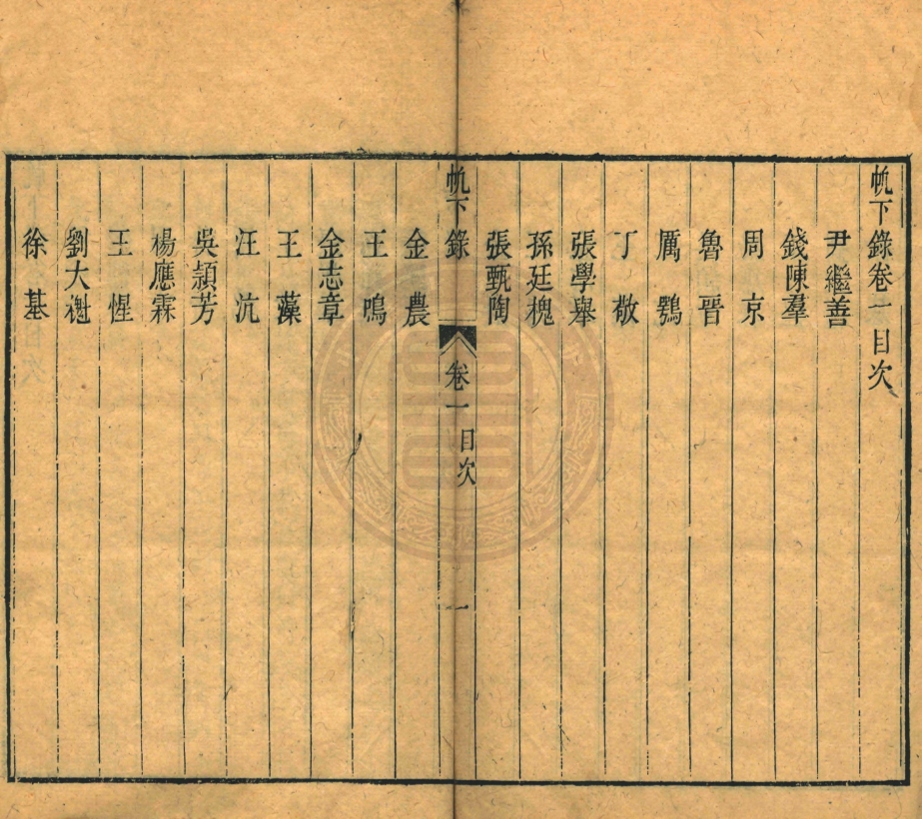 帆下錄卷一目次
尹繼善
錢陳羣
周京
魯晉
厲鶚
丁敬
張學舉
孫廷槐
張甄陶
帆下錄 卷一 目次 一
金農
王鳴
金志章
王藻
汪沆
吳頴芳
楊應霖
王惺
劉大櫆
徐基